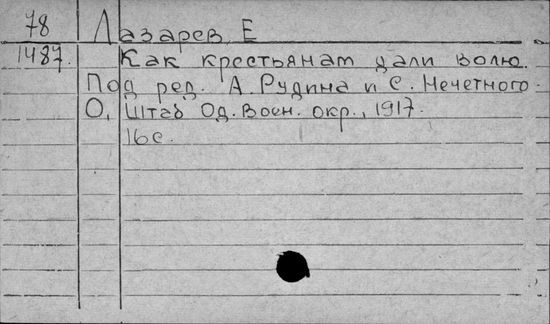 78 Лазарев, Е
1487. Как крестьянам дали волю.
Под ред. А. Рудина и С. Нечетного.
О, Штаб Од. Воен. окр., 1917.
16с.